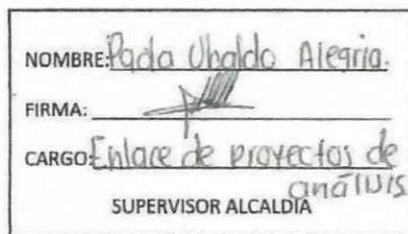 NOMBRE: Paola Ubaldo Alegria.
FIRMA:
CARGO: Enlace de proyectos de
análisis
SUPERVISOR ALCALDÍA